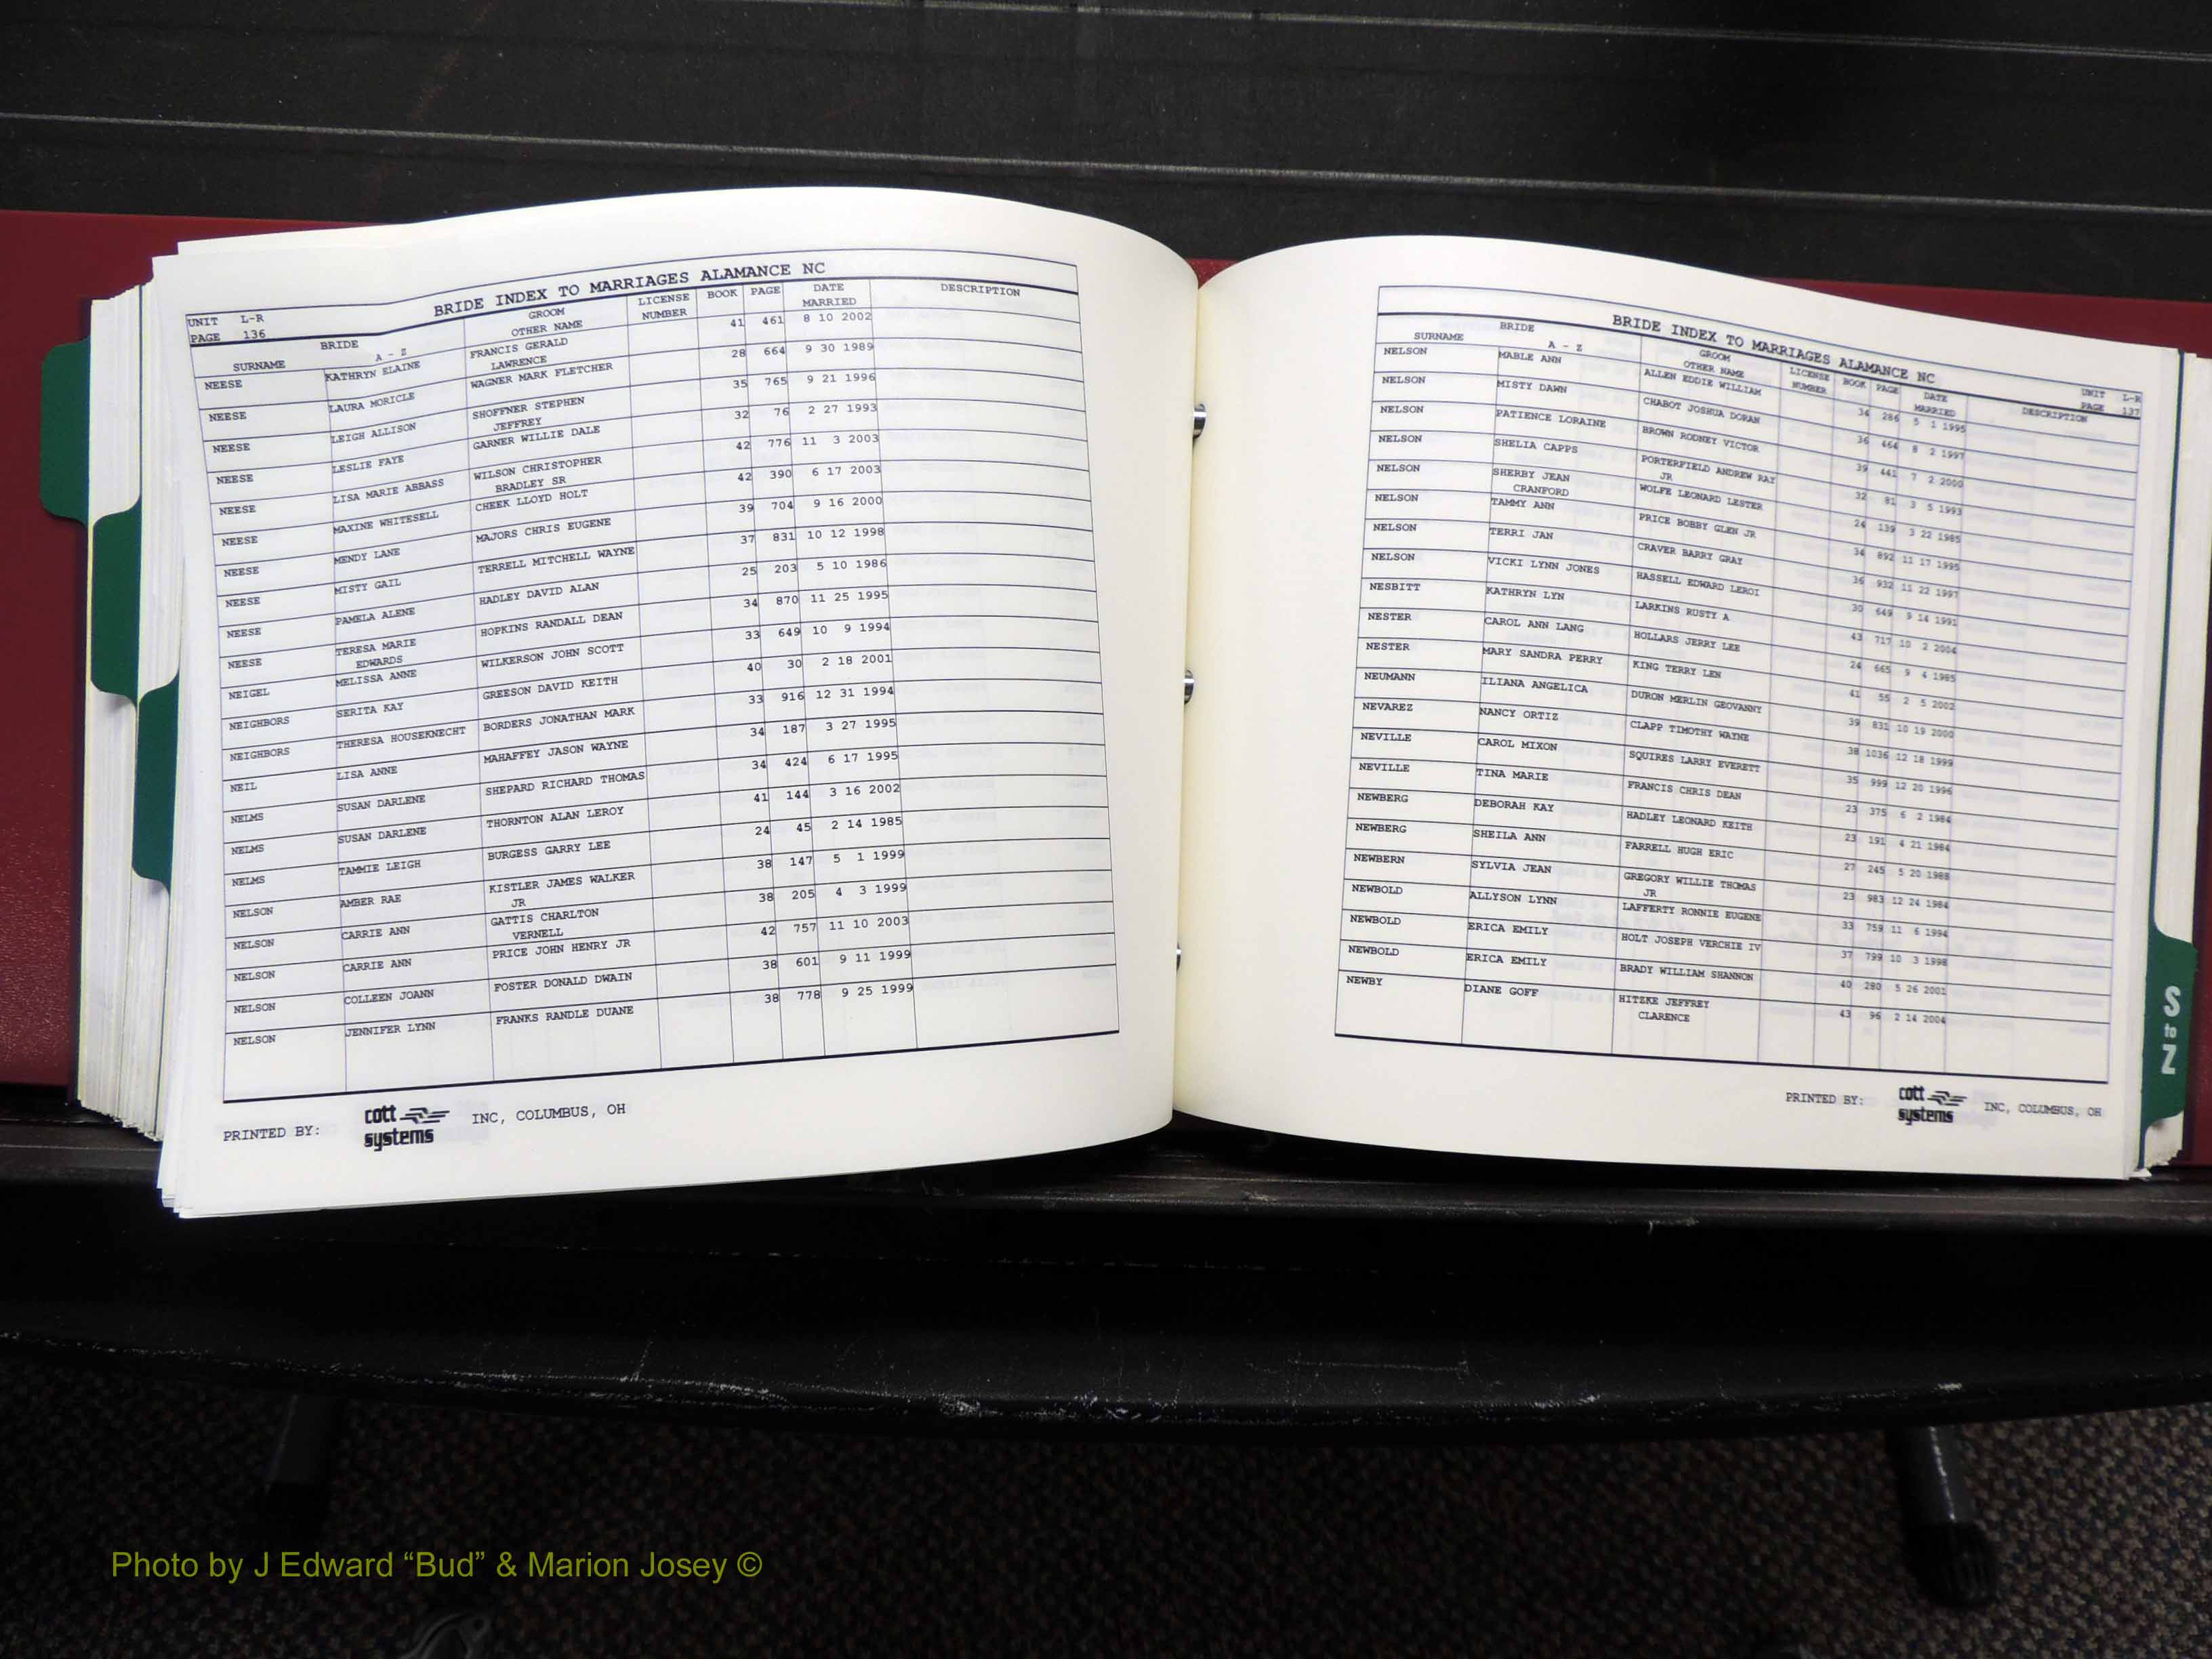 BRIDE INDEX TO MARRIAGES ALAMANCE NC
UNIT L-R
PAGE 136
BRIDE GROOM LICENSE BOOK PAGE DATE DESCRIPTION
SURNAME A - Z OTHER NAME NUMBER MARRIED
NEESE KATHRYN ELAINE FRANCIS GERALD 41 461 8 10 2002
LAWRENCE
NEESE LAURA MORICLE WAGNER MARK FLETCHER 28 664 9 30 1989
NEESE LEIGH ALLISON SHOFFNER STEPHEN 35 765 9 21 1996
JEFFREY
NEESE LESLIE FAYE GARNER WILLIE DALE 32 76 2 27 1993
NEESE LISA MARIE ABBASS WILSON CHRISTOPHER 42 776 11 3 2003
BRADLEY SR
NEESE MAXINE WHITESELL CHEEK LLOYD HOLT 42 390 6 17 2003
NEESE MENDY LANE MAJORS CHRIS EUGENE 39 704 9 16 2000
NEESE MISTY GAIL TERRELL MITCHELL WAYNE 37 831 10 12 1998
NEESE PAMELA ALENE HADLEY DAVID ALAN 25 203 5 10 1986
NEESE TERESA MARIE HOPKINS RANDALL DEAN 34 870 11 25 1995
EDWARDS
NEIGEL MELISSA ANNE WILKERSON JOHN SCOTT 33 649 10 9 1994
NEIGHBORS SERITA KAY GREESON DAVID KEITH 40 30 2 18 2001
NEIGHBORS THERESA HOUSEKNECHT BORDERS JONATHAN MARK 33 916 12 31 1994
NEIL LISA ANNE MAHAFFEY JASON WAYNE 34 187 3 27 1995
NELMS SUSAN DARLENE SHEPARD RICHARD THOMAS 34 424 6 17 1995
NELMS SUSAN DARLENE THORNTON ALAN LEROY 41 144 3 16 2002
NELMS TAMMIE LEIGH BURGESS GARRY LEE 24 45 2 14 1985
NELSON AMBER RAE KISTLER JAMES WALKER 38 147 5 1 1999
JR
NELSON CARRIE ANN GATTIS CHARLTON 38 205 4 3 1999
VERNELL
NELSON CARRIE ANN PRICE JOHN HENRY JR 42 757 11 10 2003
NELSON COLLEEN JOANN FOSTER DONALD DWAIN 38 601 9 11 1999
NELSON JENNIFER LYNN FRANKS RANDLE DUANE 38 778 9 25 1999
PRINTED BY: cott systems INC, COLUMBUS, OH
BRIDE INDEX TO MARRIAGES ALAMANCE NC
UNIT L-R
PAGE 137
BRIDE GROOM LICENSE BOOK PAGE DATE DESCRIPTION
SURNAME A - Z OTHER NAME NUMBER MARRIED
NELSON MABLE ANN ALLEN EDDIE WILLIAM 34 286 5 1 1995
NELSON MISTY DAWN CHABOT JOSHUA DORAN 36 464 8 2 1997
NELSON PATIENCE LORAINE BROWN RODNEY VICTOR 39 441 7 2 2000
NELSON SHELIA CAPPS PORTERFIELD ANDREW RAY 32 81 3 5 1993
JR
NELSON SHERBY JEAN WOLFE LEONARD LESTER 24 139 3 22 1985
CRANFORD
NELSON TAMMY ANN PRICE BOBBY GLEN JR 34 892 11 17 1995
NELSON TERRI JAN CRAVER BARRY GRAY 36 932 11 22 1997
NELSON VICKI LYNN JONES HASSELL EDWARD LEROI 30 649 9 14 1991
NESBITT KATHRYN LYN LARKINS RUSTY A 43 717 10 2 2004
NESTER CAROL ANN LANG HOLLARS JERRY LEE 24 665 9 4 1985
NESTER MARY SANDRA PERRY KING TERRY LEN 41 55 2 5 2002
NEUMANN ILIANA ANGELICA DURON MERLIN GEOVANNY 39 831 10 19 2000
NEVAREZ NANCY ORTIZ CLAPP TIMOTHY WAYNE 38 1036 12 18 1999
NEVILLE CAROL MIXON SQUIRES LARRY EVERETT 35 999 12 20 1996
NEVILLE TINA MARIE FRANCIS CHRIS DEAN 23 375 6 2 1984
NEWBERG DEBORAH KAY HADLEY LEONARD KEITH 23 191 4 21 1984
NEWBERG SHEILA ANN FARRELL HUGH ERIC 27 245 5 20 1988
NEWBERN SYLVIA JEAN GREGORY WILLIE THOMAS 23 983 12 24 1984
JR
NEWBOLD ALLYSON LYNN LAFFERTY RONNIE EUGENE 33 759 11 6 1994
NEWBOLD ERICA EMILY HOLT JOSEPH VERCHIE IV 37 799 10 3 1998
NEWBOLD ERICA EMILY BRADY WILLIAM SHANNON 40 280 5 26 2001
NEWBY DIANE GOFF HITZKE JEFFREY 43 96 2 14 2004
CLARENCE
PRINTED BY: cott systems INC, COLUMBUS, OH
S
to
Z
Photo by J Edward “Bud” & Marion Josey ©